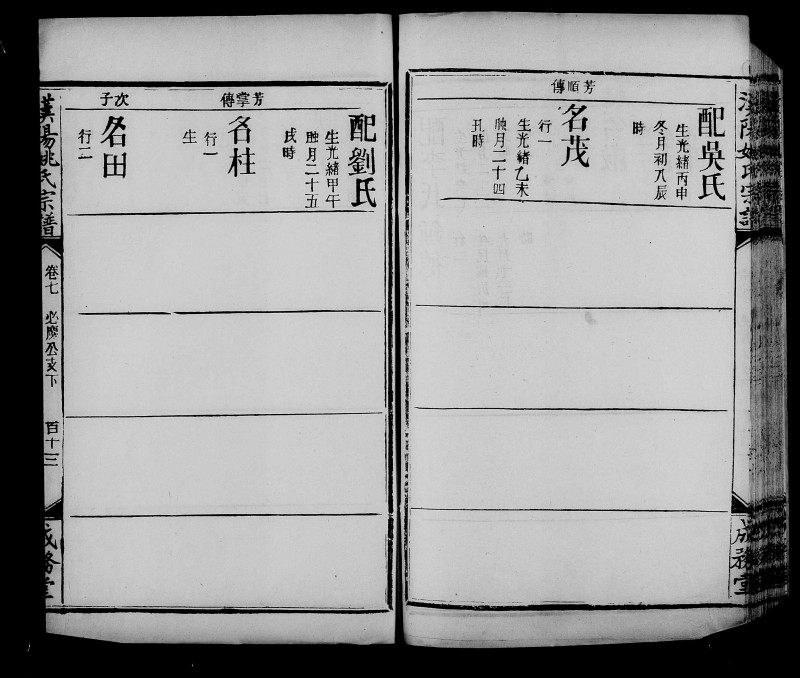 配吳氏
生光緒丙申
冬月初八辰
時
芳順傳
名茂
行一
生光緒乙未
腊月二十四
丑時
成務堂
配劉氏
生光緒甲午
腊月二十五
戌時
芳掌傳
名柱
行一
生
次子
名田
行二
漢陽姚氏宗譜
卷七
百十三
成務堂